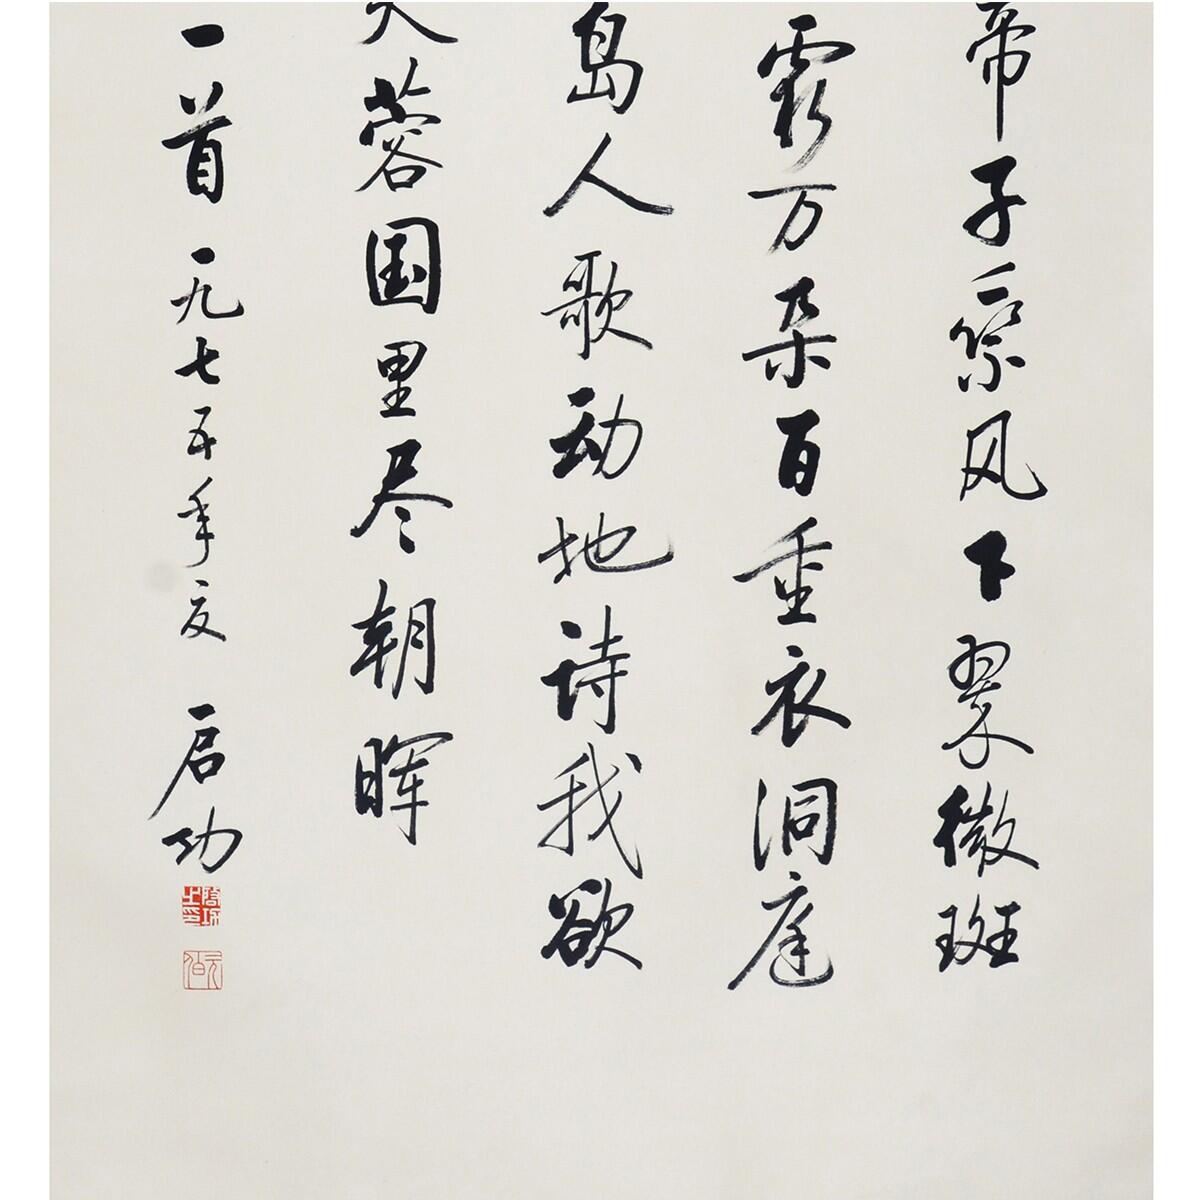 帝子乘风下翠微斑
霞万朵百重衣洞庭
岛人歌动地诗我欲
芙蓉国里尽朝晖
一首 一九七五年夏 启功
啓功之印
元伯